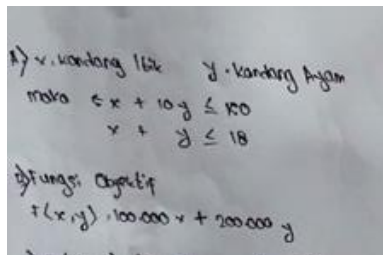 1) x. kandang Itik y. kandang Ayam
maka 5x + 10y ≤ 150
x + y ≤ 18
2) Fungsi Objektif
f(x,y) . 100.000 x + 200.000 y